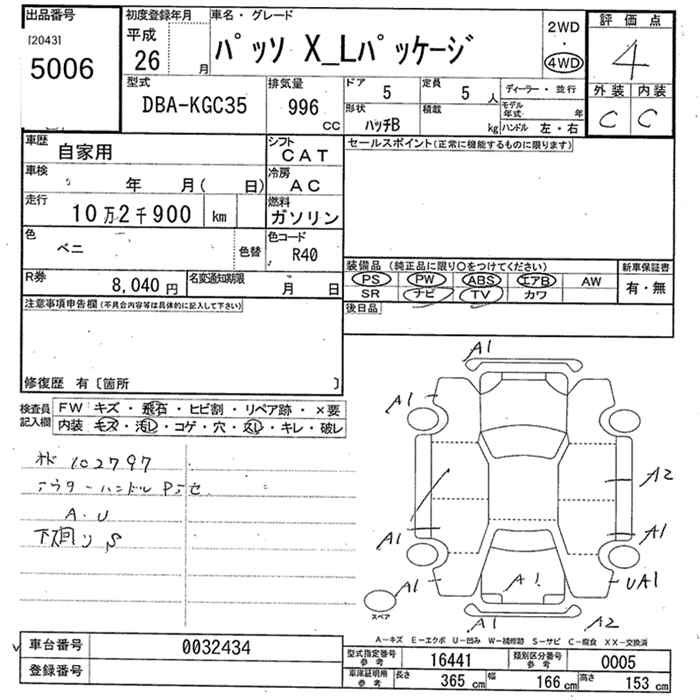 出品番号
[2043]
5006
初度登録年月
平成
26 月
車名・グレード
パッソ X_Lパッケージ
2WD
・
4WD
評価点
4
外装 内装
C C
型式
DBA-KGC35
排気量
996 CC
ドア 5
定員 5 人
形状 ハッチB
積載 kg
ディーラー・並行
モデル年式 年
ハンドル 左・右
車歴
自家用
シフト
CAT
車検
年 月( 日)
冷房
AC
走行
10万2千900 km
燃料
ガソリン
色
ベニ
色替
色コード
R40
R券
8,040円
名変通知期限
月 日
セールスポイント(正常に機能するものに限ります)
装備品 (純正品に限り○をつけてください)
PS PW ABS エアB AW
SR ナビ TV カワ
新車保証書
有・無
後日品
注意事項申告欄(不具合内容等は具体的に記入して下さい)
修復歴 有〔箇所 〕
検査員記入欄
FW キズ・飛石・ヒビ割・リペア跡・×要
内装 キズ・汚レ・コゲ・穴・スレ・キレ・破レ
102797
アウターハンドル
A.U
下回り S
A1
A1
A2
A1
A1
A1
A1
UA1
A1
A2
スペア
A-キズ E-エクボ U-凹み W-補修跡 S-サビ C-腐食 XX-交換済
車台番号 0032434
登録番号
型式指定番号 参考 16441
類別区分番号 参考 0005
車庫証明用 参考 長さ 365 cm 幅 166 cm 高さ 153 cm